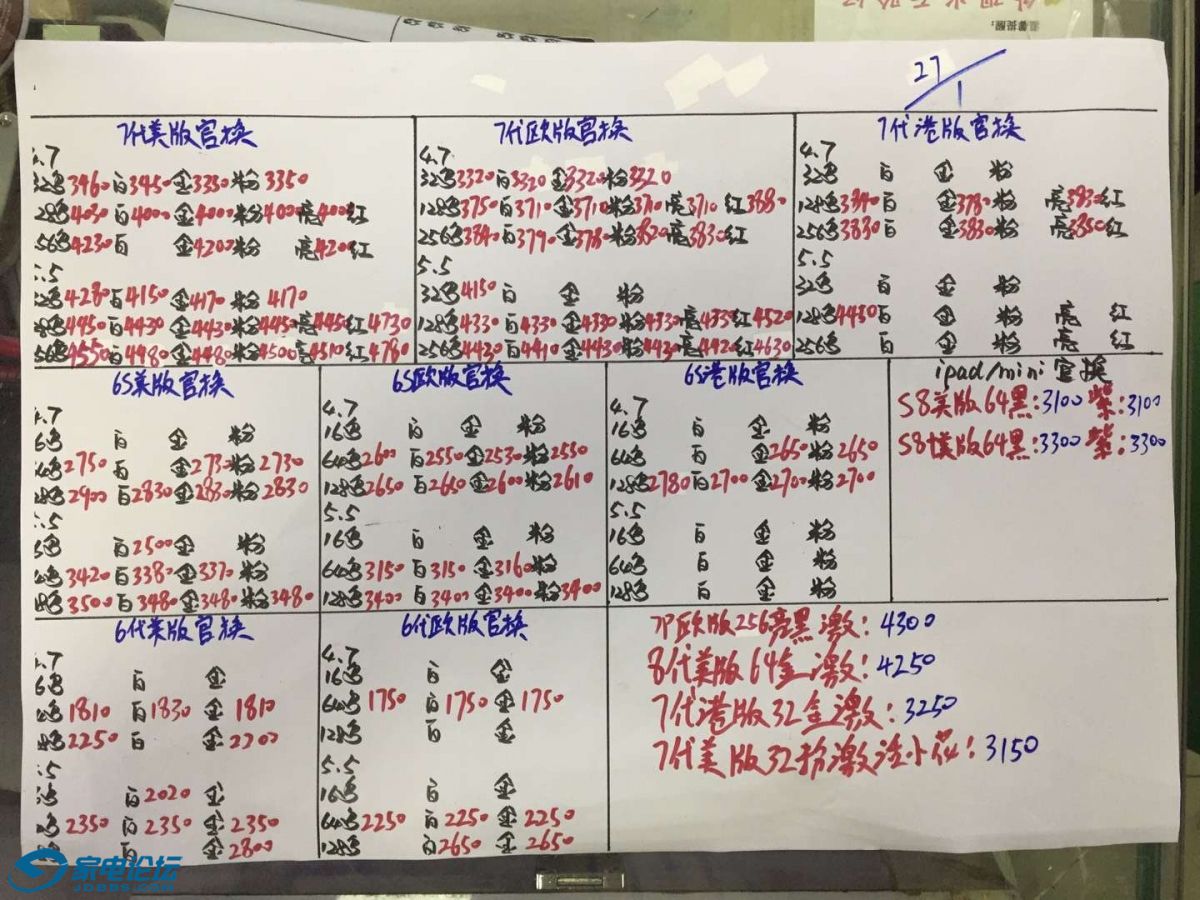 27
1
7代美版官换
4.7
32黑3460白3450金3350粉3350
128黑4030白4000金4000粉4000亮4000红
256黑4230白 金4200粉 亮4200红
5.5
32黑4280白4150金4170粉4170
128黑4450白4430金4430粉4450亮4450红4730
256黑4550白4480金4480粉4500亮4510红4780
7代欧版官换
4.7
32黑3320白3320金3320粉3320
128黑3750白3710金3710粉3710亮3710红3880
256黑3840白3790金3780粉3820亮3830红
5.5
32黑4150白 金 粉
128黑4330白4330金4330粉4330亮4330红4520
256黑4430白4410金4430粉4430亮4420红4630
7代港版官换
4.7
32黑 白 金 粉
128黑3840白 金3780粉 亮3830红
256黑3830白 金3830粉 亮3850红
5.5
32黑 白 金 粉
128黑4450白 金 粉 亮 红
256黑 白 金 粉 亮 红
6S美版官换
4.7
16黑 白 金 粉
64黑2750白 金2730粉2730
128黑2900白2830金2830粉2830
5.5
16黑 白2500金 粉
64黑3420白3380金3370粉
128黑3500白3480金3480粉3480
6S欧版官换
4.7
16黑 白 金 粉
64黑2600白2550金2530粉2550
128黑2650白2650金2600粉2610
5.5
16黑 白 金 粉
64黑3150白3150金3160粉
128黑3400白3400金3400粉3400
6S港版官换
4.7
16黑 白 金 粉
64黑 白 金2650粉2650
128黑2780白2700金2700粉2700
5.5
16黑 白 金 粉
64黑 白 金 粉
128黑 白 金 粉
ipad/mini官换
S8美版64黑:3100紫:3100
S8+美版64黑:3300紫:3300
6代美版官换
4.7
16黑 白 金
64黑1810白1830金1810
128黑2250白 金2200
5.5
16黑 白2020金
64黑2350白2350金2350
128黑 金2800
6代欧版官换
4.7
16黑 白 金
64黑1750白1750金1750
128黑 白 金
5.5
16黑 白 金
64黑2250白2250金2250
128黑 白2650金2650
7P欧版256亮黑激:4300
8代美版64金激:4250
7代港版32金激:3250
7代美版32粉激活小花:3150
家电论坛
JDBBS.COM